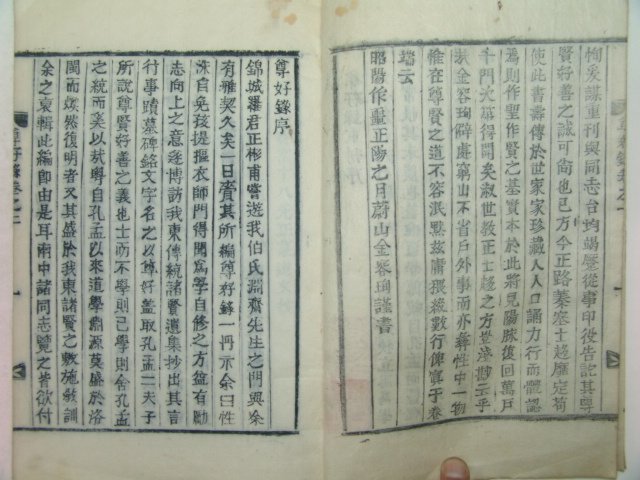 恂爰謀重刊與同志台均竭歷從事印役告訖其尊
賢好善之誠可尙也已方今正路蓁塞士趍靡定苟
使此書壽傳於世家家珍藏人人口誦力行而體認
焉則作聖作賢之基實本於此將見陽脉復回萬戶
千門次第得開矣叔世敎正士趍之方豈淺尠也乎
哉金容珣處窮山不省戶外事而亦彝性中一物
惟在尊賢之道不容泯黙玆庸猥綴數行俾寘于卷
端云
昭陽作噩正陽之日蔚山金容珣謹書
尊好錄序
錦城羅君正彬甫嘗遊我伯氏淵齋先生之門與余
有雅契久矣一日賫其所編尊好錄一冊示余曰性
洙自免孩提摳衣師門得聞爲學自修之方益有勵
志向上之意遂博訪我東傳統諸賢遺集抄出其言
行事蹟墓碑銘文字名之以尊好蓋取孔孟二夫子
所說尊賢好善之義也士而不學則已學則舍孔孟
之統而奚以哉粤自孔孟以來道學淵源莫盛於洛
閩而煥然復明者又其盛於我東諸賢之敷施敎訓
余之裒輯此編卽由是耳兩中諸同志覽之皆欲付
尊好錄卷之一